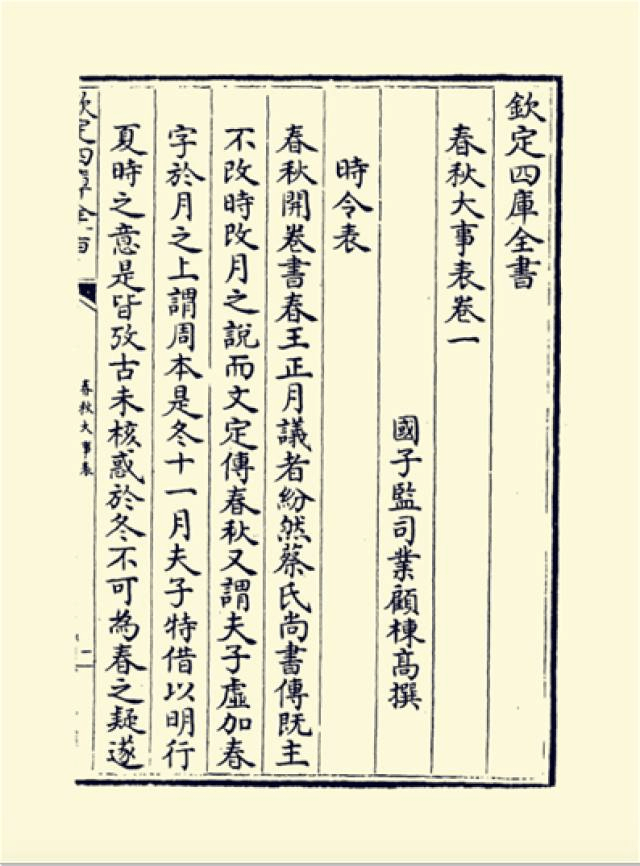 欽定四庫全書
春秋大事表卷一
國子監司業顧棟髙撰
時令表
春秋開卷書春王正月議者紛然蔡氏尚書傳既主
不改時改月之說而文定傳春秋又謂夫子虛加春
字於月之上謂周本是冬十一月夫子特借以明行
夏時之意是皆攷古未核惑於冬不可為春之疑遂
欽定四庫全書
春秋大事表